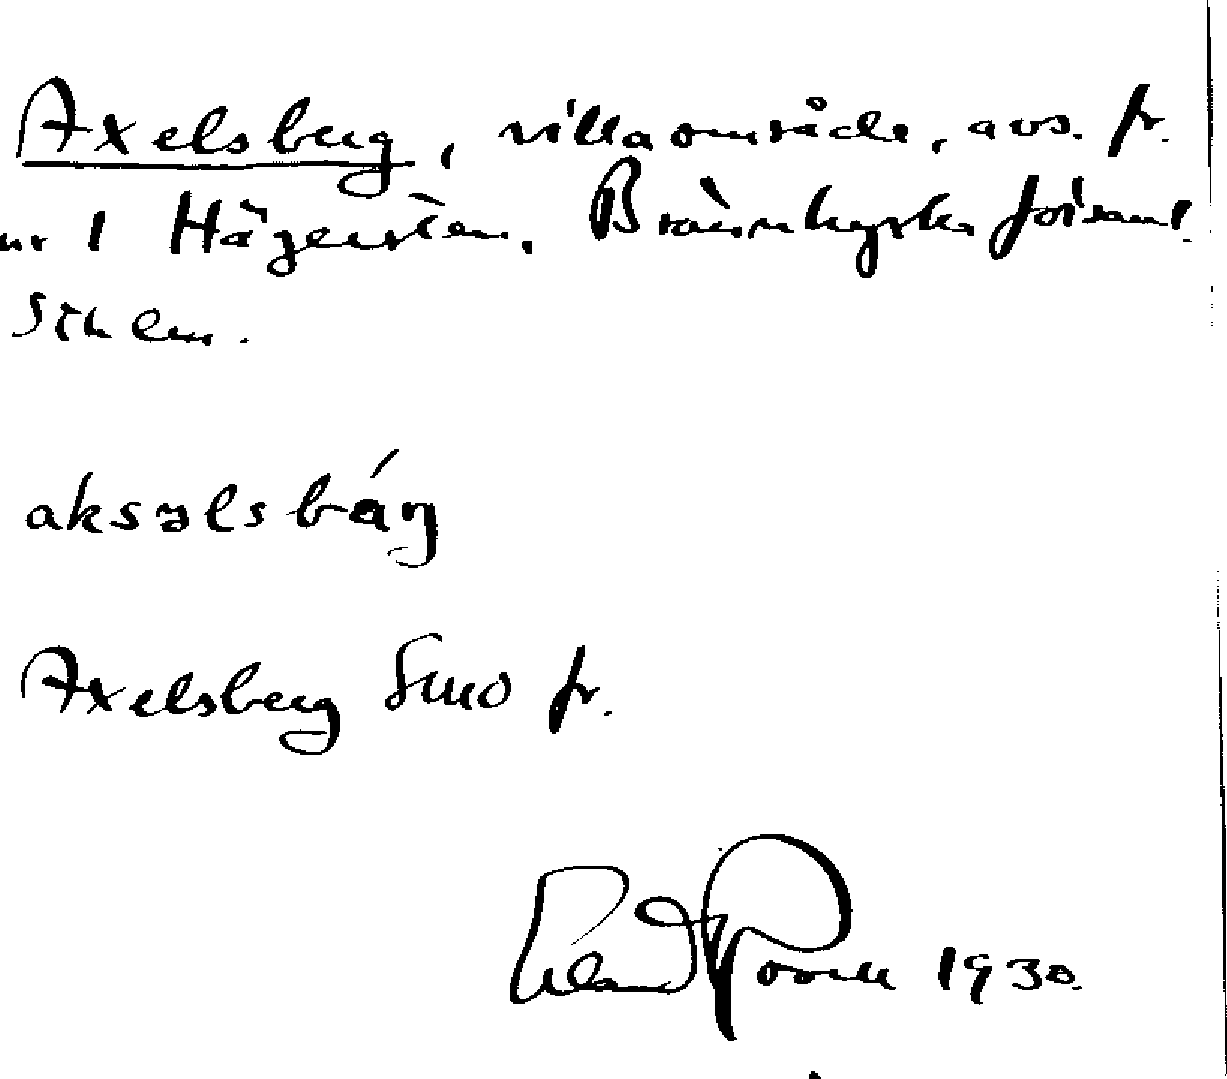 Axelsberg, villaområde, avs. fr.
nr 1 Hägersten, Brännkyrka församl.
Sthlm.
aksəlsbárj
Axelsberg fr.
1930.